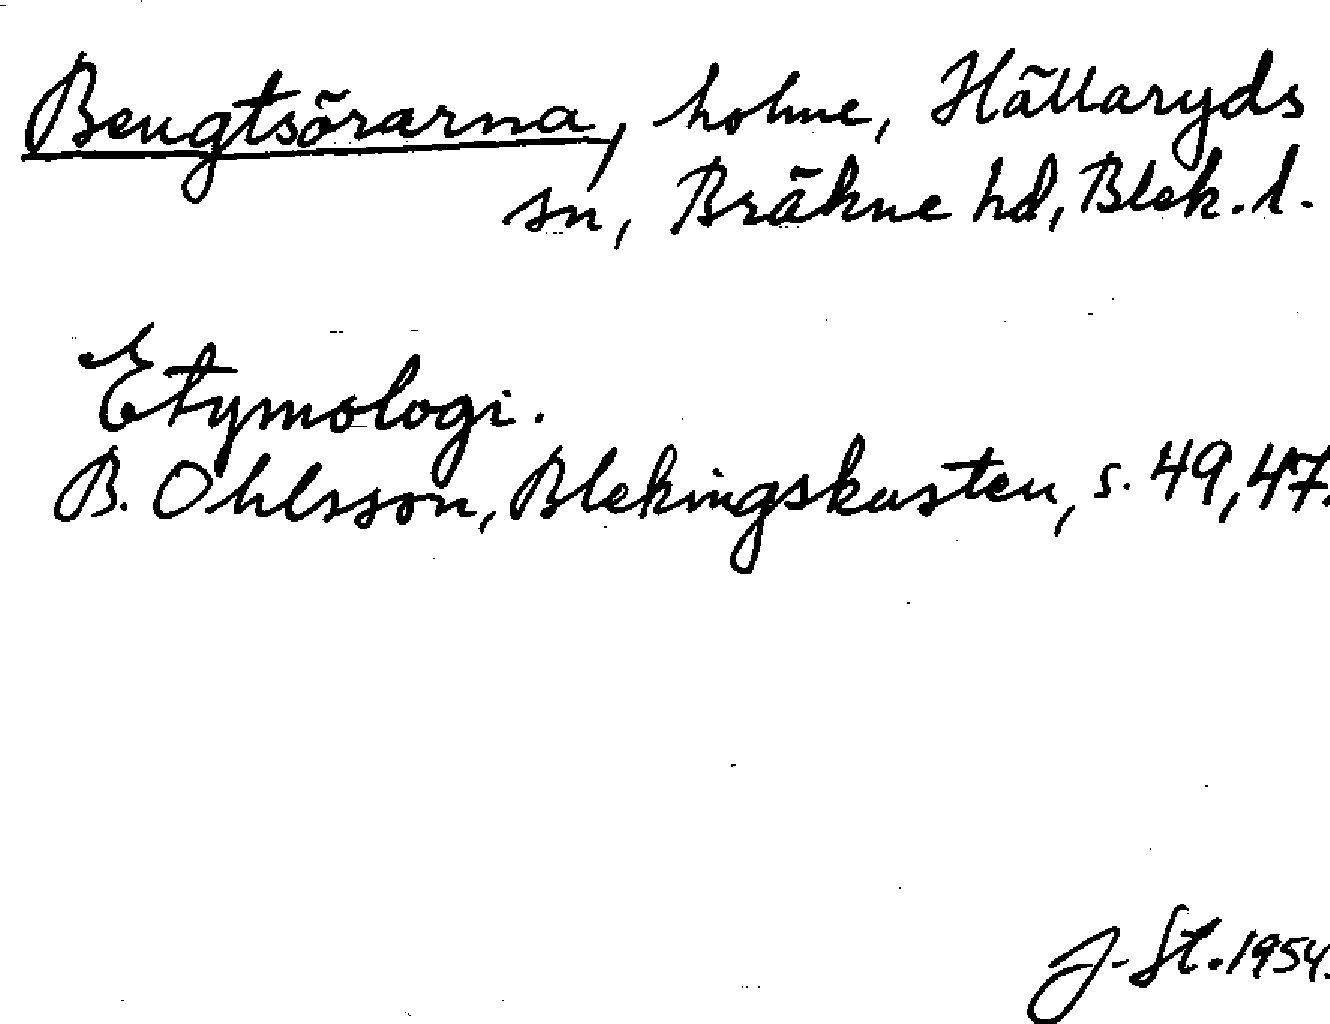 Bengtsörarna, holme, Hällaryds
sn, Bräkne hd, Blek. l.
Etymologi.
B. Ohlsson, Blekingskusten, s. 49, 47.
J. St. 1954.